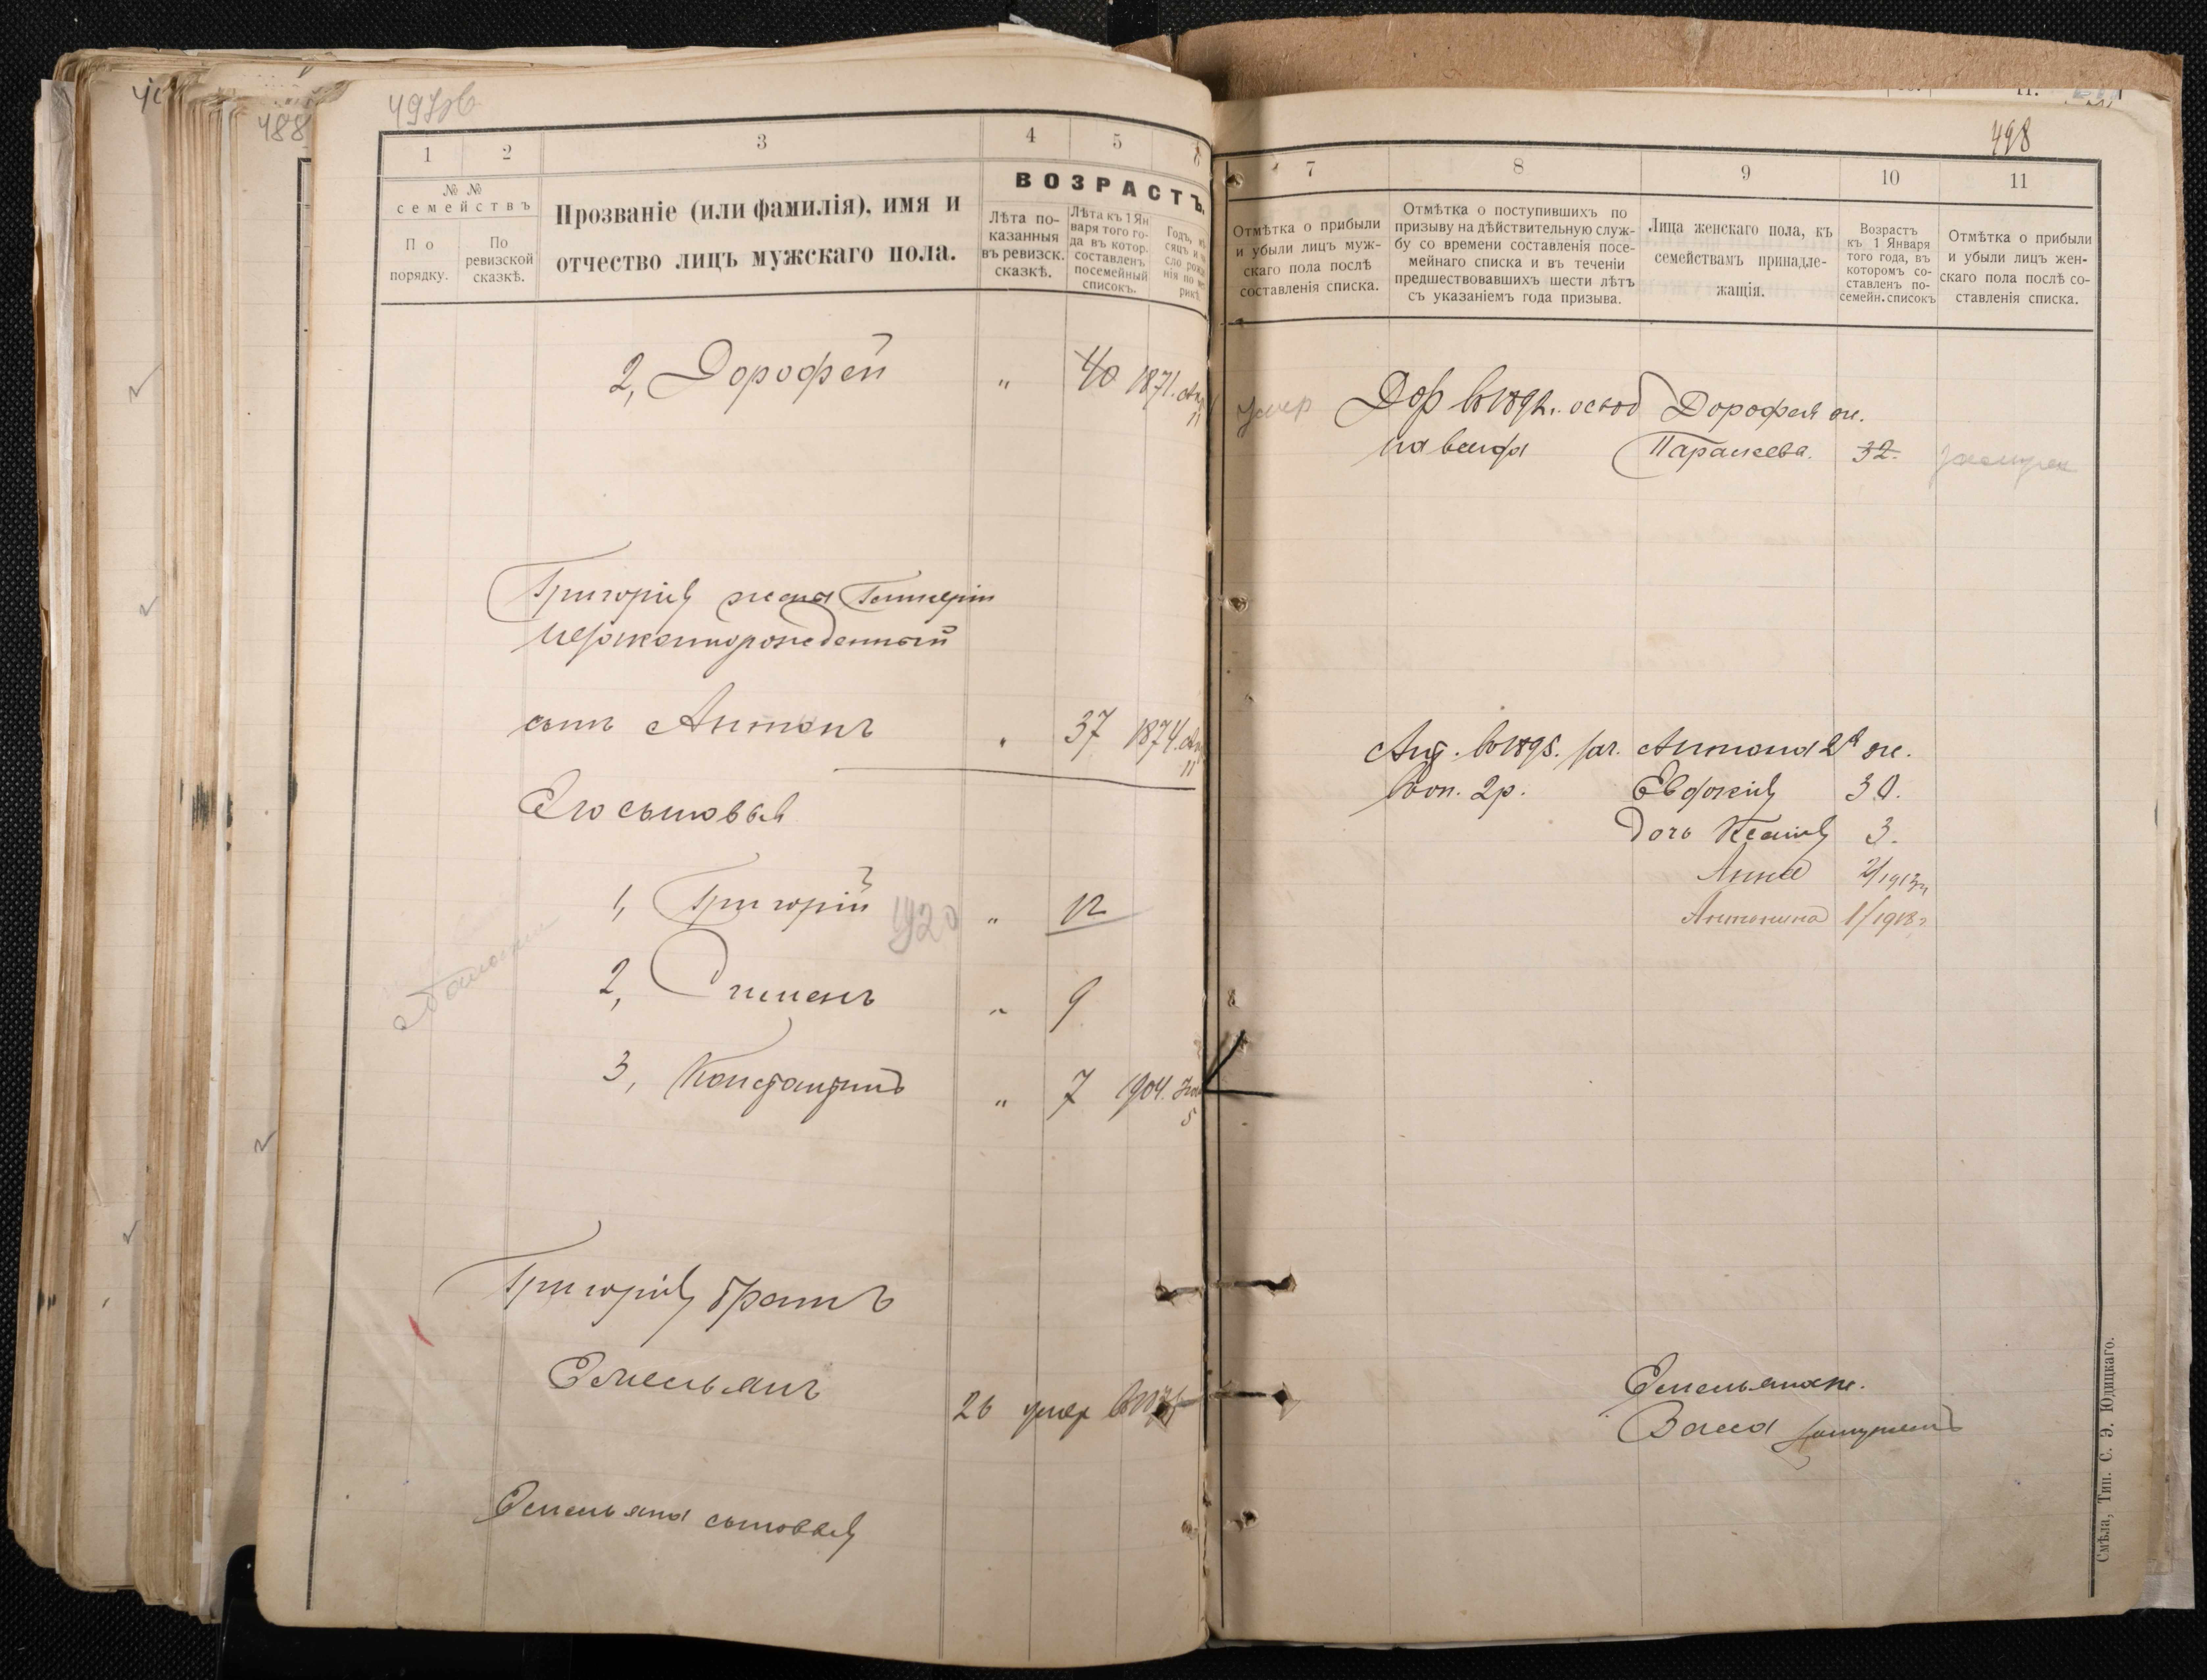 497об
488
1
2
3
4
5
№ №
семействъ
По
порядку.
По
ревизской
сказкѣ.
Прозваніе (или фамилія), имя и
отчество лицъ мужскаго пола.
ВОЗРАСТЪ.
Лѣта по-
казанныя
въ ревизск.
сказкѣ.
Лѣта къ 1 Ян
варя того го-
да въ котор.
составленъ
посемейный
списокъ.
2, Дорофей " 40 1871. Апр
11
Григорія жена
сынъ Антонъ 37 1874.
11
Его сыновья
1, Григорій 1920 " 12
2, Пименъ " 9
3, Константинъ " 7 1904.
5
Григорія братъ
Емельянъ
26 умер
Емельяна сыновья
498
7
8
9
10
11
Отмѣтка о прибыли
и убыли лицъ муж-
скаго пола послѣ
составленія списка.
Отмѣтка о поступившихъ по
призыву на дѣйствительную служ-
бу со времени составленія посе-
мейнаго списка и въ теченіи
предшествовавшихъ шести лѣтъ
съ указаніемъ года призыва.
Лица женскаго пола, къ
семействамъ принадле-
жащія.
Возрастъ
къ 1 Января
того года, въ
которомъ со-
ставленъ по-
семейн. списокъ
Отмѣтка о прибыли
и убыли лицъ жен-
скаго пола послѣ со-
ставленія списка.
умер Дор в 1892. освоб Дорофея ж.
навсегда Параскева. 32.
Ант. в 1895. зач. Антона 2я ж.
2р. Евдокія 30.
дочь Ксенія 3.
Анна 2/1913г
Антонина 1/1918г
Емельяна ж.
Васса замужемъ
Смѣла, Тип. С. Э. Юдицкаго.